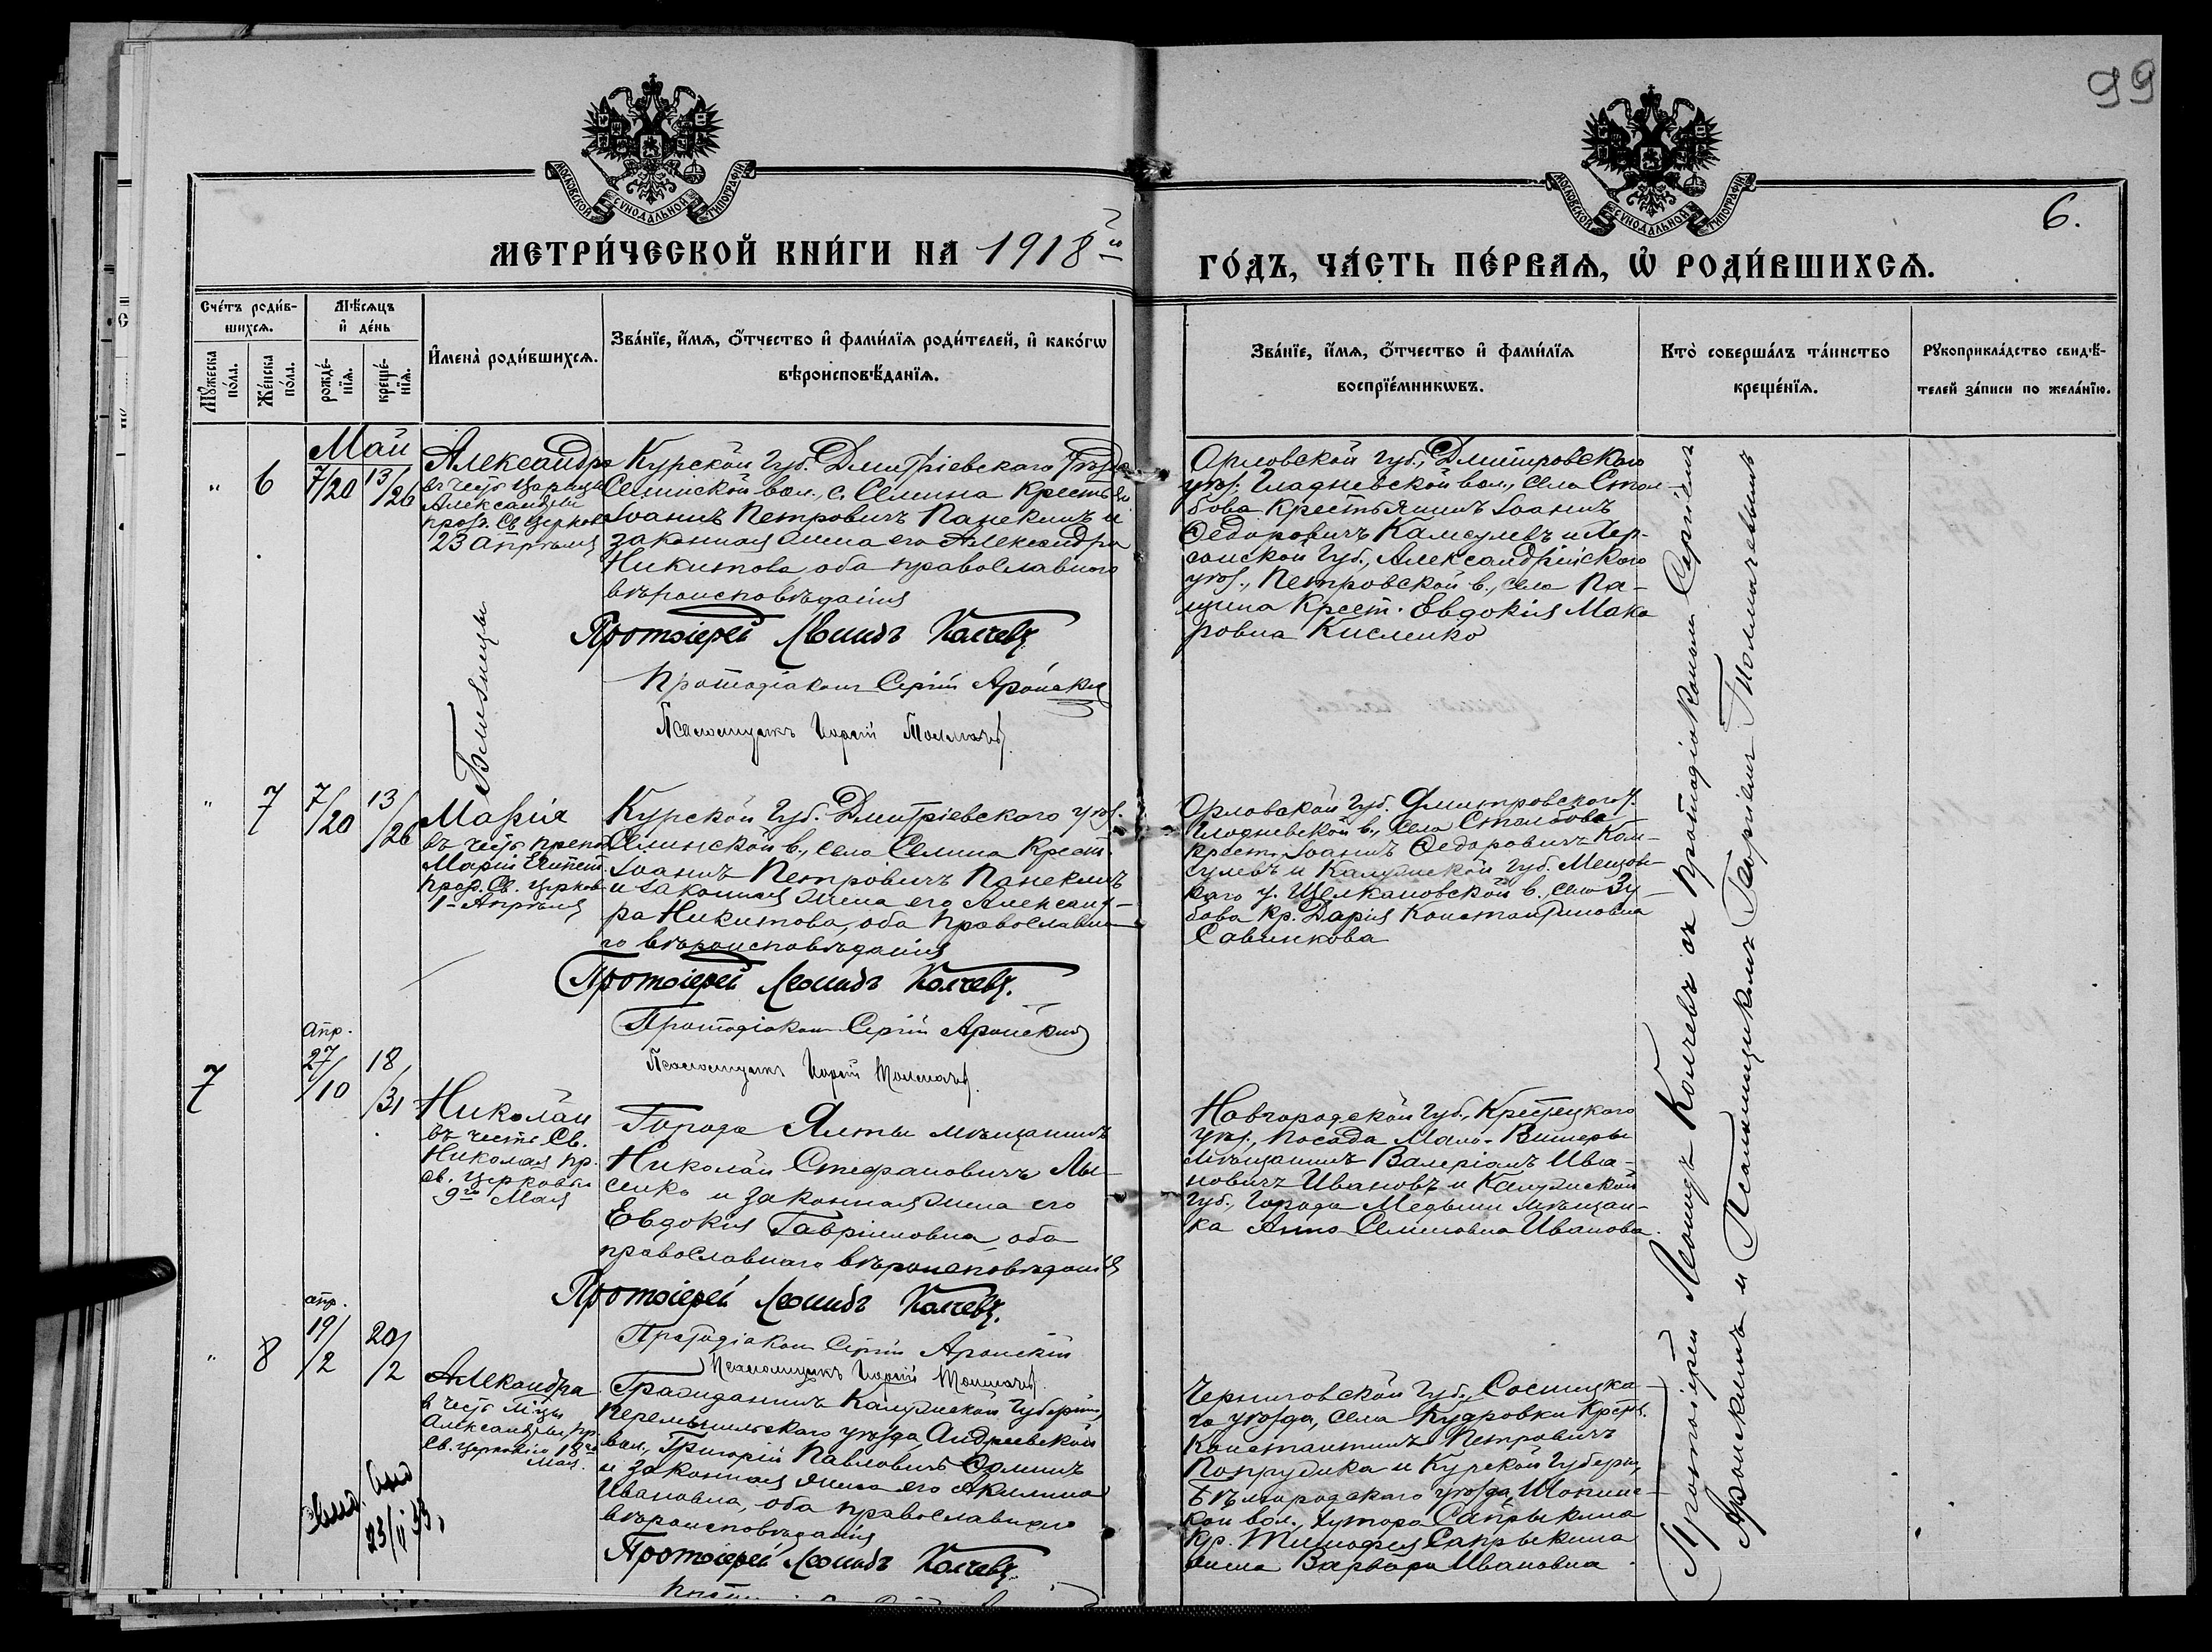 99
МОСКОВСКОЙ СѴНОДАЛЬНОЙ ТИПОГРАФІИ
МОСКОВСКОЙ СѴНОДАЛЬНОЙ ТИПОГРАФІИ
6.
МЕТРИ́ЧЕСКОЙ КНИ́ГИ НА 1918й
ГО́ДЪ, ЧА́СТЬ ПЕ́РВАѦ, Ѡ҆ РОДИ́ВШИХСѦ.
Сче́тъ роди́в-
шихсѧ.
Мѣ́сѧцъ
и҆ де́нь
Мꙋ́жеска
по́ла.
Же́нска
по́ла.
рожде́-
нїѧ.
креще́-
нїѧ.
И҆мена̀ роди́вшихсѧ.
Зва́нїе, и҆́мѧ, ѻ҆́тчество и҆ фами́лїѧ роди́телей, и҆ како́гѡ
вѣроисповѣ́данїѧ.
Зва́нїе, и҆́мѧ, ѻ҆́тчество и҆ фами́лїѧ
воспрїе́мникѡвъ.
Кто̀ соверша́лъ та́инство
креще́нїѧ.
Рꙋкоприкла́дство свидѣ́-
телей за́писи по жела́нїю.
Май
„ 6 7/20 13/26
Александра
въ честь царицы
Александры
празд. Св. Церков
23 Апрѣля
Курской Губ. Дмитріевскаго уѣзда
Селинской вол., с. Селина Крестьян
Іоаннъ Петровичъ Панекинъ и
законная жена его Александра
Никитова, оба православнаго
вѣроисповѣданія
Протоіерей Леонидъ Колчевъ.
Протодіаконъ Сергій Аронскій
Псаломщикъ Георгій Толмачевъ.
Орловской губ., Дмитровскаго
уѣз. Гладневской вол., села Стол-
бова Крестьянинъ Іоаннъ
Ѳедоровичъ Камсулевъ и Хер-
сонской Губ., Александрійскаго
уѣз., Петровской в., села Па-
Крест. Евдокія Мака
ровна Кисленко
Близнецы
„ 7 7/20 13/26
Марія
въ честь препод
Маріи Египет.
праз. Св. Церков
1-Апрѣля
Курской Губ. Дмитріевскаго уѣз.
Селинской в., села Селина Крест.
Іоаннъ Петровичъ Панекинъ
и законная жена его Александ-
ра Никитова, оба православна-
го вѣроисповѣданія
Протоіерей Леонидъ Колчевъ.
Протодіаконъ Сергій Аронскій
Псаломщикъ Георгій Толмачевъ.
Орловской Губ. Дмитровскаго у.
Гладневской в., села Столбова
крест. Іоаннъ Ѳедоровичъ Кам-
сулевъ и Калужской Губ. Мещов-
каго у. Щелкановской в. села Зу-
бова Кр. Дарія Константиновна
Савинкова
7 Апр. 27/10 18/31
Николай
въ честь Св.
Николая пр.
св. Церковью
9го Мая
Города Ялты мѣщанинъ
Николай Стефановичъ Лы-
сенко и законная жена его
Евдокія Гавріиловна, оба
православнаго вѣроисповѣданія
Протоіерей Леонидъ Колчевъ.
Протодіаконъ Сергій Аронскій
Псаломщикъ Георгій Толмачевъ.
Новгородской Губ., Крестецкаго
уѣз., посада Мало-Вишеры
мѣщанинъ Валеріанъ Ива-
новичъ Ивановъ и Калужской
губ., города Медыни мѣщан-
ка Анна Семеновна Иванова.
„ 8 апр. 19/2 20/2
Александра
в честь м-цы
Александры пр.
Св. Церковію 18го
Мая.
Гражданинъ Калужской Губерніи,
Перемышльскаго уѣзда Андреевской
вол., Григорій Павловичъ
и законная жена его Акилина
Ивановна, оба православнаго
вѣроисповѣданія
Протоіерей Леонидъ Колчевъ.
Черниговской Губ., Сосницка-
го уѣзда, села Кудровки Крест.
Константинъ Петровичъ
и Курской Губерн.,
Бѣлгородскаго уѣзда,
кой вол., хутора Сапрыкина
Кр. Тимофея Сапрыкина
жена Варвара Ивановна
23/II 33,
Протоіерей Леонидъ Колчевъ съ протодіакономъ Сергіемъ
Аронскимъ и Псаломщикомъ Георгіемъ Толмачевымъ